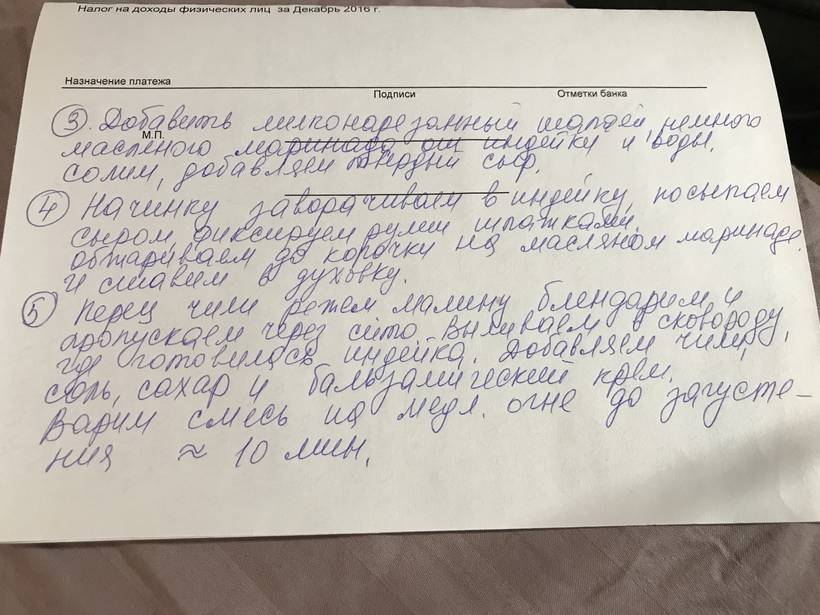 Налог на доходы физических лиц за Декабрь 2016 г.
Назначение платежа
Подписи
Отметки банка
М.П.
③. Добавить мелконарезанный шалфей, немного
масляного маринада от индейки и воды,
солим, добавляем твердый сыр.
④ Начинку заворачиваем в индейку, посыпаем
сыром, фиксируем рулет шпажками,
обжариваем до корочки на масляном маринаде.
и ставим в духовку.
⑤ Перец чили режем малину блендарим и
пропускаем через сито. Выливаем в сковороду,
где готовилась индейка. Добавляем чили,
соль, сахар и бальзамический крем.
Варим смесь на медл. огне до загусте-
ния ≈ 10 мин.